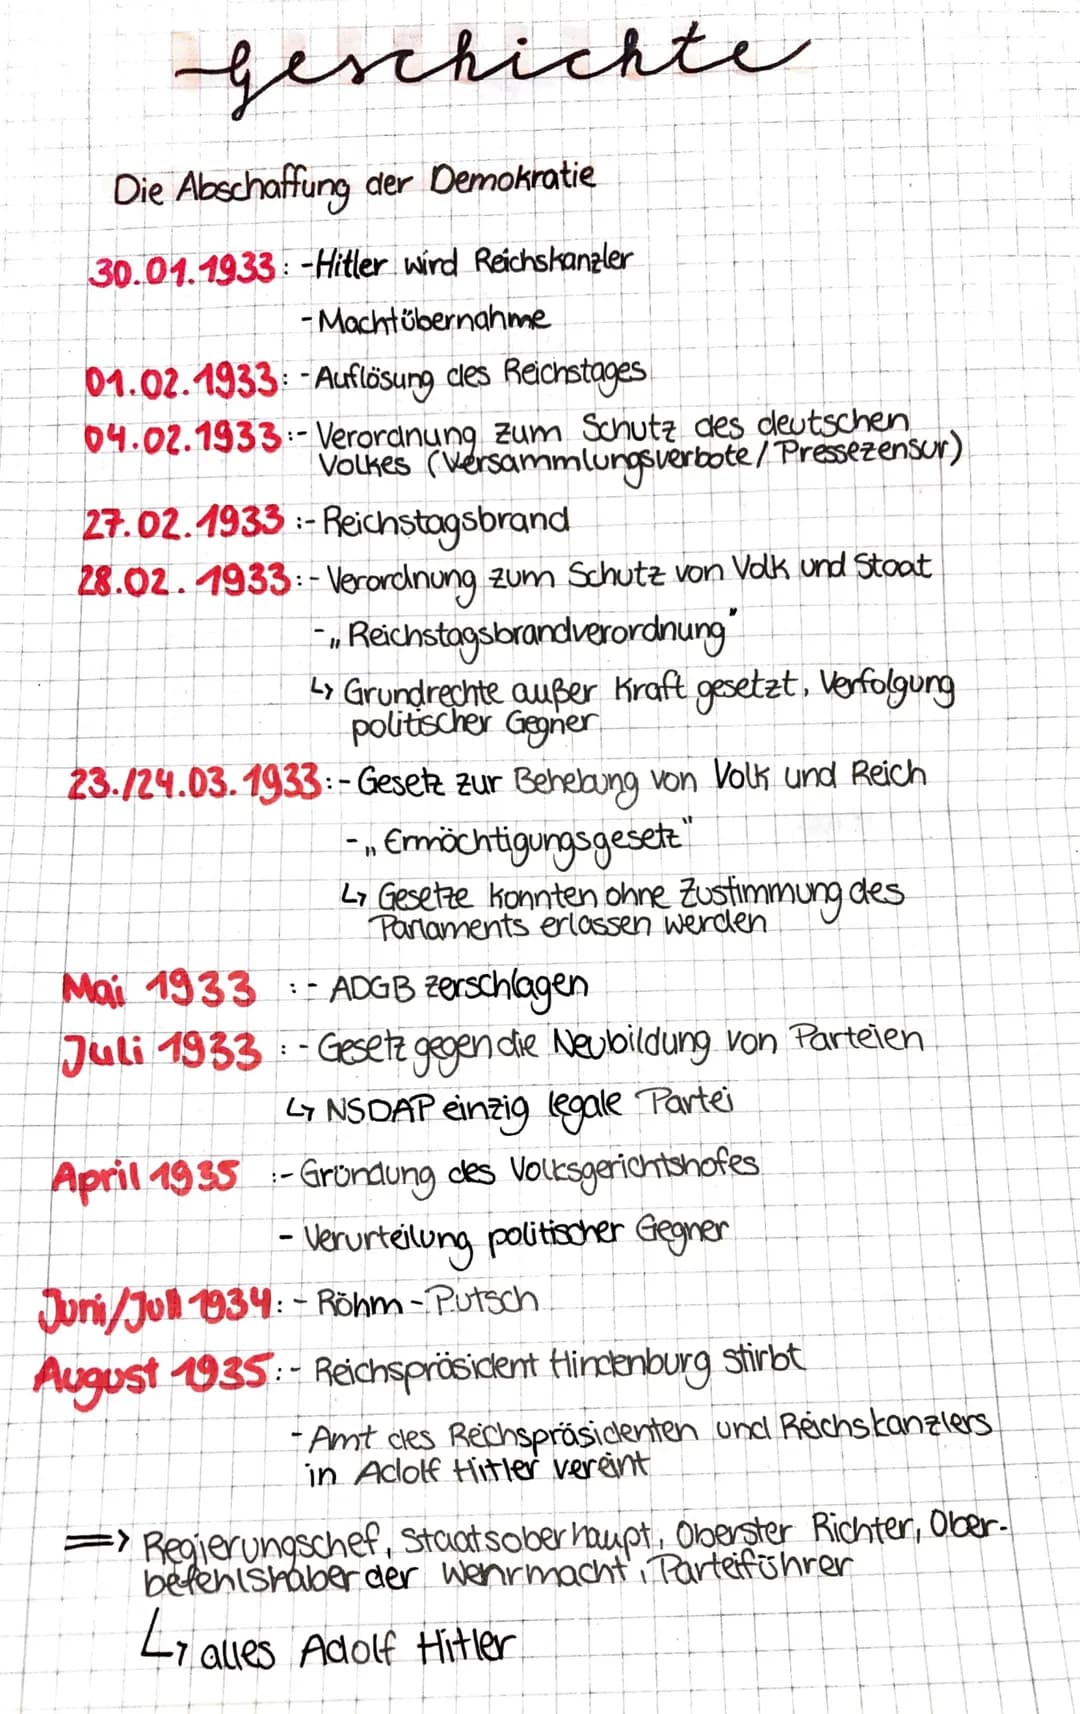 Geschichte
Die Abschaffung der Demokratie
30.01.1933: - Hitler wird Reichskanzler
- Machtübernahme
01.02.1933: - Auflösung des Reichstages
04.02.1933: - Verordnung zum Schutz des deutschen
Volkes (Versammlungsverbote / Pressezensur)
27.02.1933: - Reichstagsbrand
28.02.1933: - Verordnung zum Schutz von Volk und Staat
- „Reichstagsbrandverordnung"
↳ Grundrechte außer Kraft gesetzt, Verfolgung
politischer Gegner
23./24.03.1933: - Gesetz zur Behebung von Volk und Reich
- „Ermächtigungsgesetz"
↳ Gesetze konnten ohne Zustimmung des
Parlaments erlassen werden
Mai 1933 : - ADGB zerschlagen
Juli 1933 : - Gesetz gegen die Neubildung von Parteien
↳ NSDAP einzig legale Partei
April 1935 : - Gründung des Volksgerichtshofes
- Verurteilung politischer Gegner
Juni/Juli 1934: - Röhm-Putsch
August 1935: - Reichspräsident Hindenburg stirbt
- Amt des Reichspräsidenten und Reichskanzlers
in Adolf Hitler vereint
=> Regierungschef, Staatsoberhaupt, Oberster Richter, Ober-
befehlshaber der Wehrmacht, Parteiführer
↳ alles Adolf Hitler